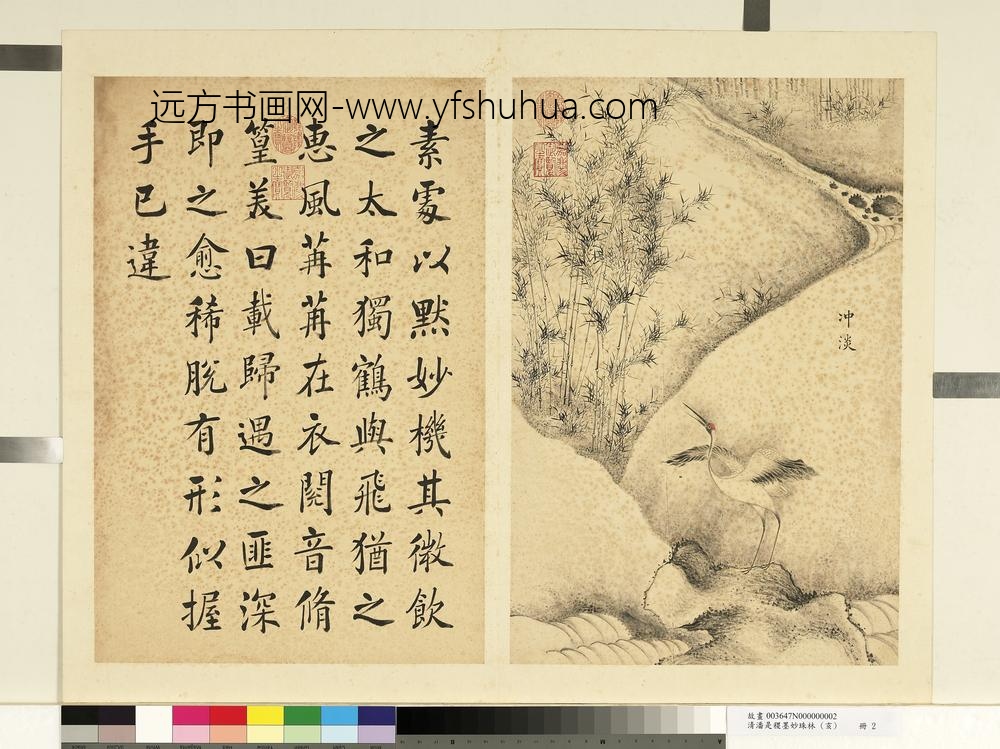 远方书画网-www.yfshuhua.com
素處以默妙機其微飲
之太和獨鶴與飛猶之
惠風苒苒在衣閱音脩
篁美曰載歸遇之匪深
即之愈稀脫有形似握
手已違
冲淡
故畫 003647N000000002
清潘是稷墨妙珠林(亥) 冊 2